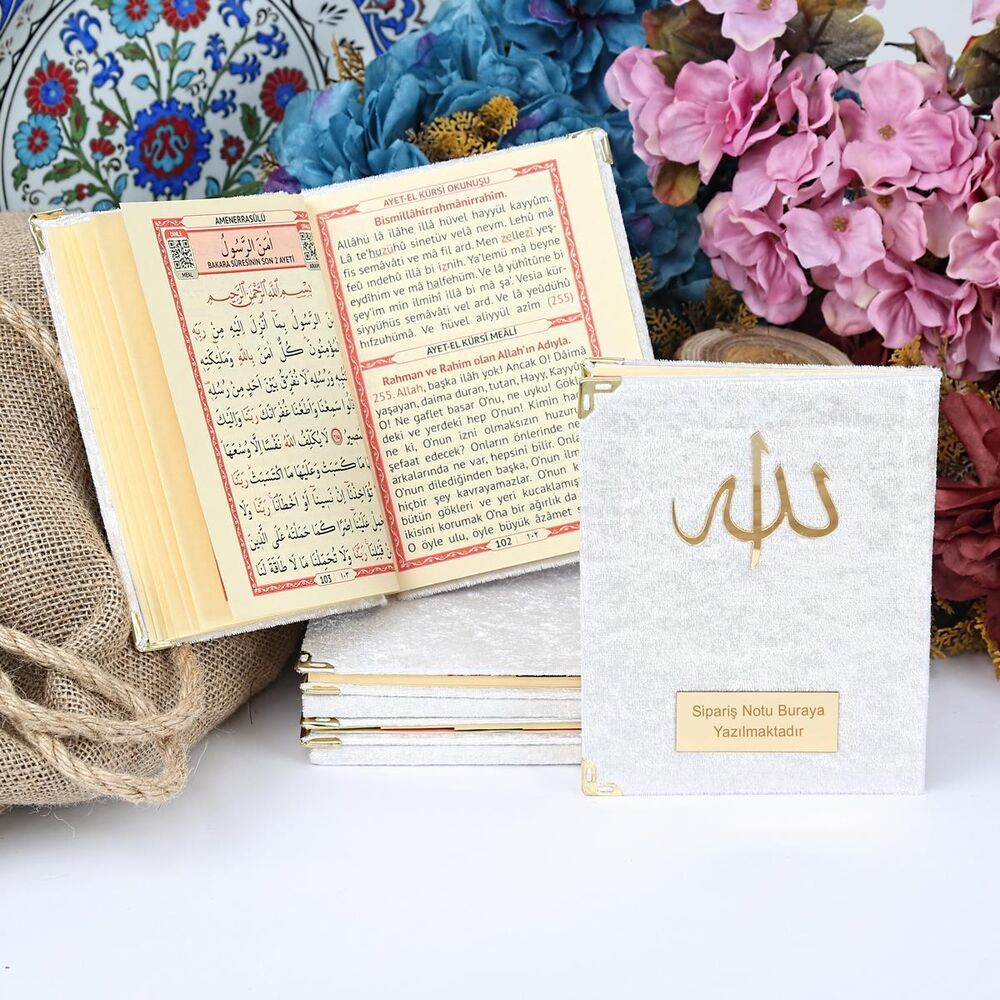 AMENERRASÛLÜ
DİNLE
MEAL
اٰمَنَ الرَّسُولُ
BAKARA SÛRESİNİN SON 2 AYETİ
بِسْمِ اللّٰهِ الرَّحْمٰنِ الرَّحِيمِ
اٰمَنَ الرَّسُولُ بِمَٓا اُنْزِلَ اِلَيْهِ مِنْ رَبِّه۪
كُلٌّ اٰمَنَ بِاللّٰهِ وَمَلٰٓئِكَتِه۪
وَرُسُلِه۪ لَا نُفَرِّقُ بَيْنَ اَحَدٍ مِنْ رُسُلِه۪
سَمِعْنَا وَاَطَعْنَا غُفْرَانَكَ رَبَّنَا وَاِلَيْكَ
لَا يُكَلِّفُ اللّٰهُ نَفْسًا اِلَّا وُسْعَهَا
مَا كَسَبَتْ وَعَلَيْهَا مَا اكْتَسَبَتْ رَبَّنَا
اِنْ نَسِينَٓا اَوْ اَخْطَأْنَا رَبَّنَا وَلَا
عَلَيْنَٓا اِصْرًا كَمَا حَمَلْتَهُ عَلَى الَّذِينَ
قَبْلِنَا رَبَّنَا وَلَا تُحَمِّلْنَا مَا لَا طَاقَةَ لَنَا
103 ١٠٣
AYET-EL KÜRSİ OKUNUŞU
Bismillâhirrahmânirrahîm.
Allâhü lâ ilâhe illâ hüvel hayyül kayyûm.
Lâ te'huzühû sinetüv velâ nevm. Lehû mâ
fis semâvâti ve mâ fil ard. Men zellezî yeş-
feû ındehû illâ bi iznih. Ya'lemü mâ beyne
eydîhim ve mâ halfehüm. Ve lâ yühîtûne bi
şey'im min ilmihî illâ bi mâ şa'. Vesia kür-
siyyühüs semâvâti vel ard. Ve lâ yeûdühû
hıfzuhümâ. Ve hüvel aliyyül azîm (255)
AYET-EL KÜRSİ MEÂLİ
Rahman ve Rahim olan Allah'ın Adıyla.
255. Allah, başka ilâh yok! Ancak O! Dâima
yaşayan, daima duran, tutan, Hayy, Kayyû
O! Ne gaflet basar O'nu, ne uyku! Gök
deki ve yerdeki hep O'nun! Kimin ha
ne ki, O'nun izni olmaksızın huzur
şefaat edecek? Onların önlerinde n
arkalarında ne var, hepsini bilir. Onla
O'nun dilediğinden başka, O'nun ilm
hiçbir şey kavrayamazlar. O'nun
bütün gökleri ve yeri kucaklamış
ikisini korumak O'na bir ağırlık da
O öyle ulu, öyle büyük âzâmet s
102 ١٠٢
الله
Sipariş Notu Buraya
Yazılmaktadır